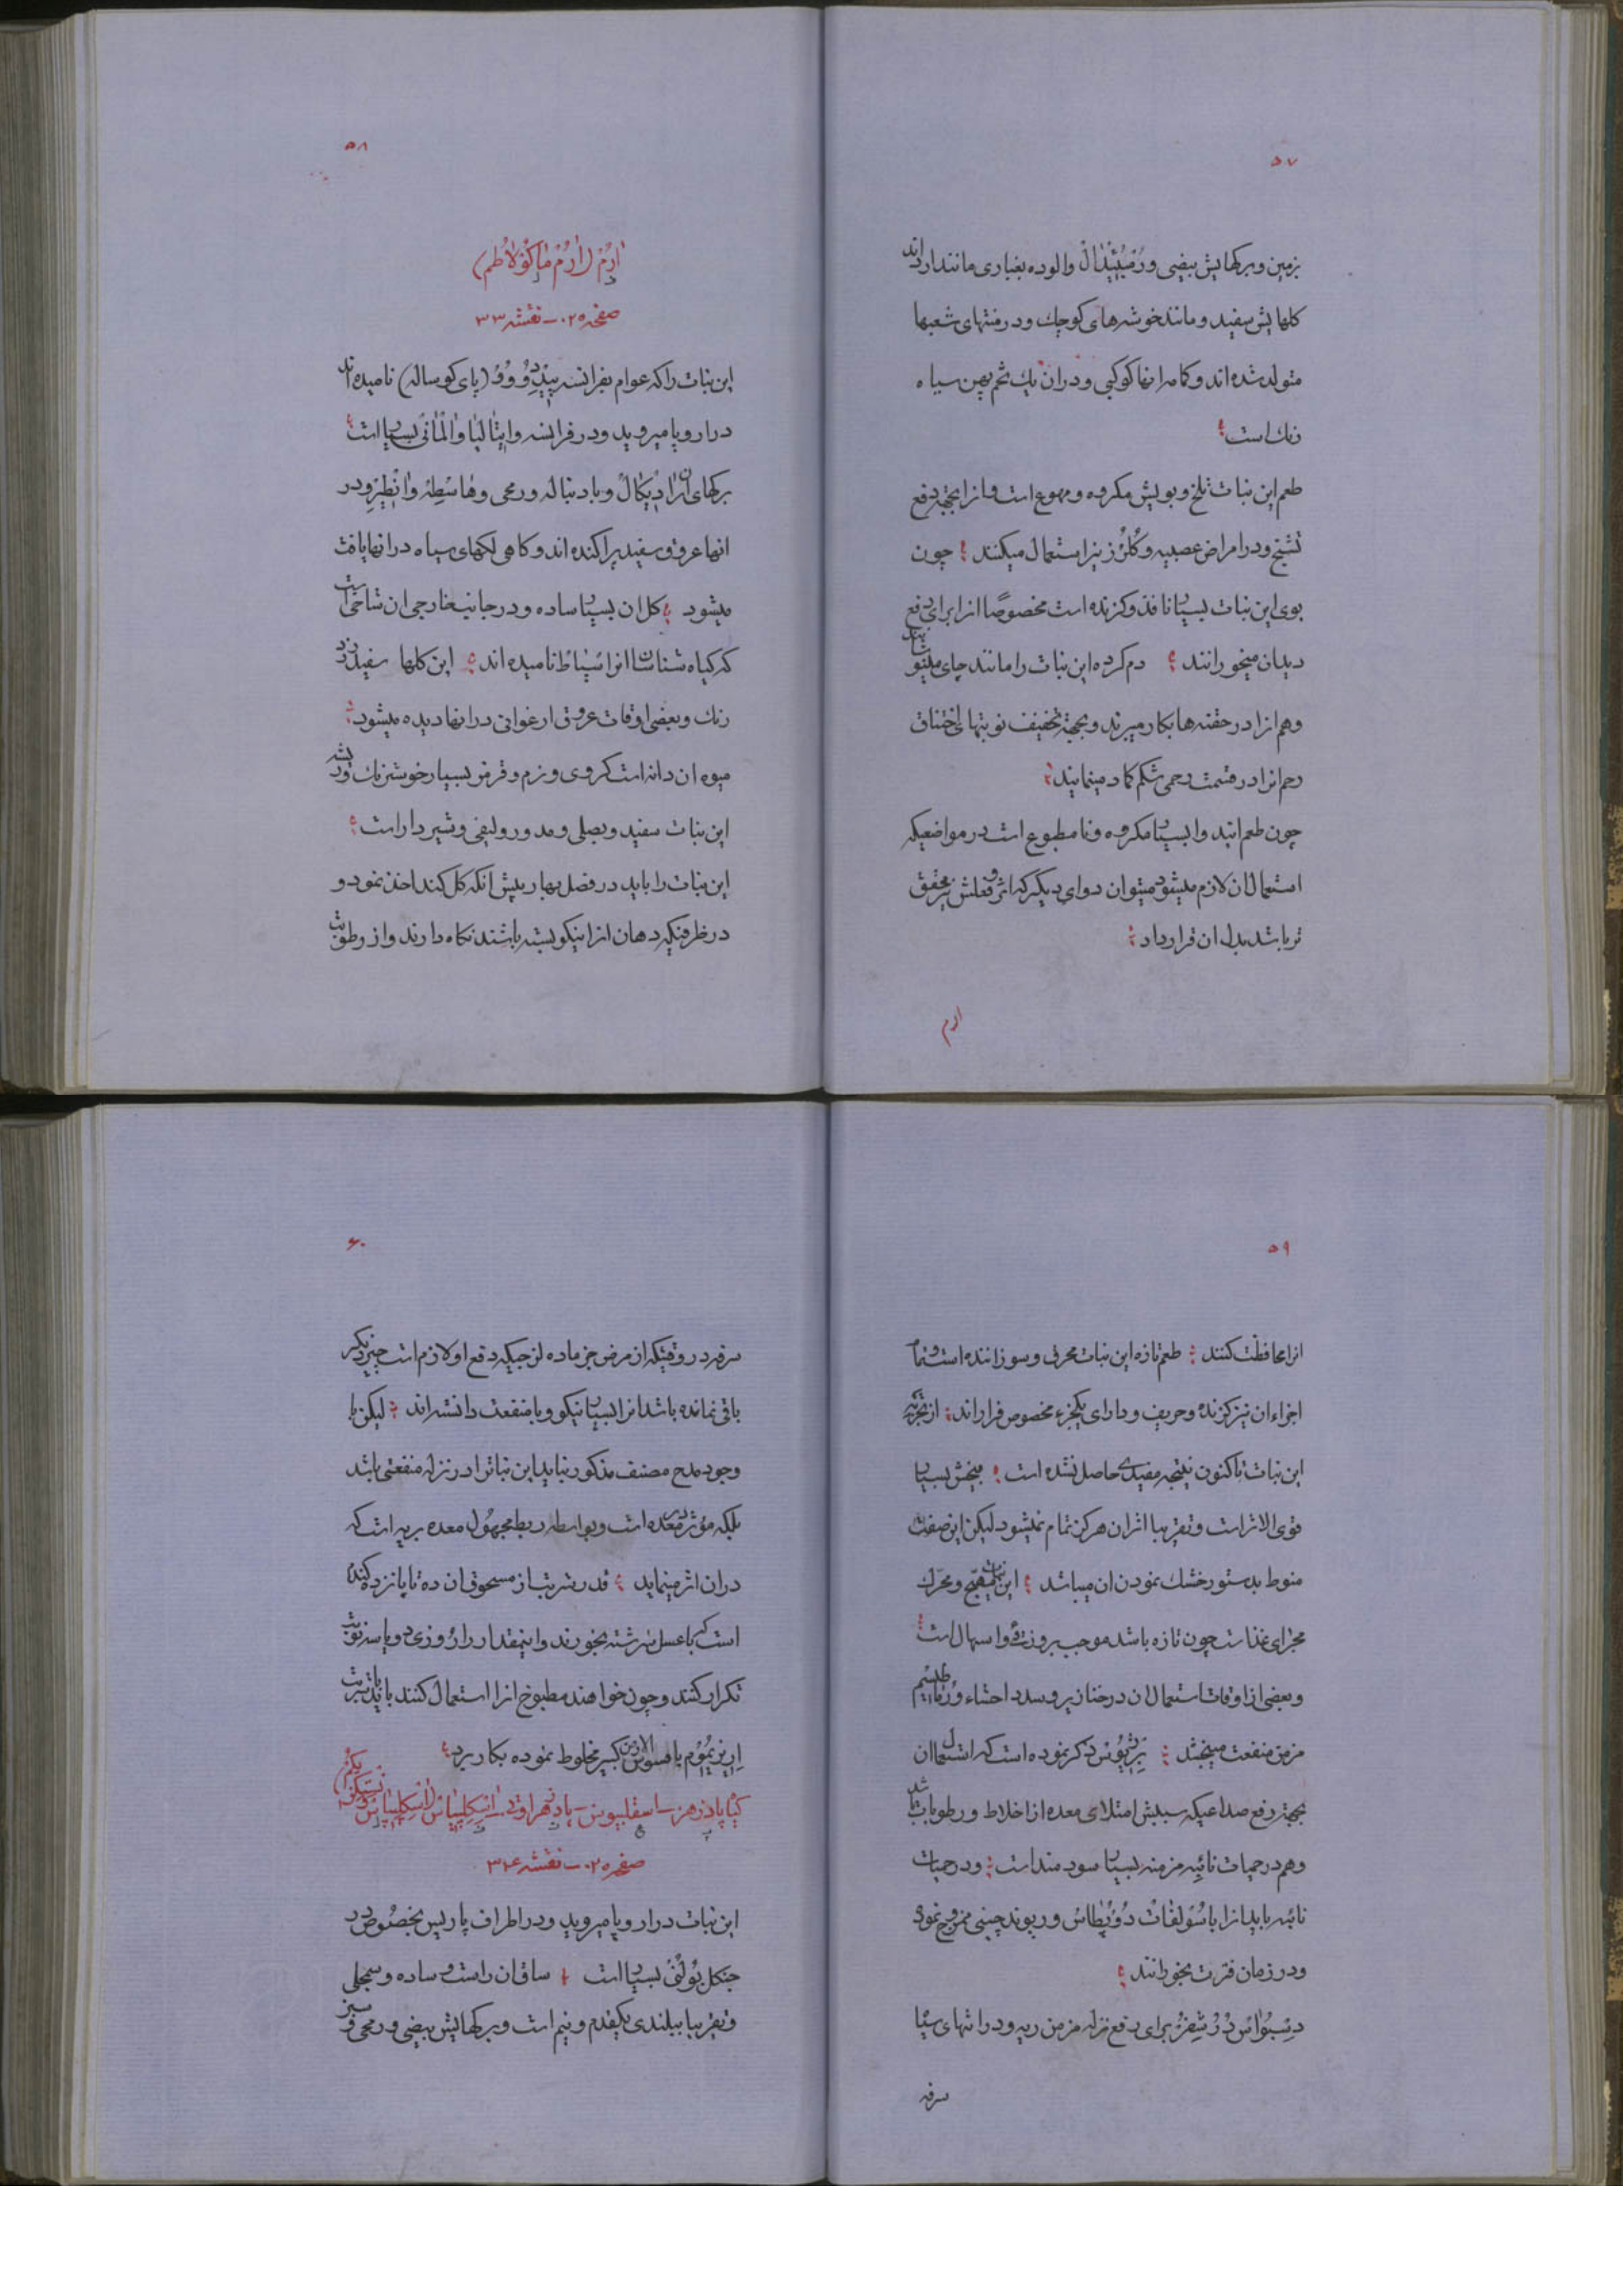 ۵۷
بزمین و برکهایش بیضی و رُمْبُئیدال والوده بغباری مانند ارد اند
کلهایش سفید و مانند خوشه‌های کوچك و در منتهای شعبها
متولد شده اند و کاسه انها کوکبی و دران یك تخم پهن سیاه
رنك است
طعم این نبات تلخ و بویش مکروه و مهوع است و انرا بجهة دفع
تشنج و در امراض عصبیه و کُلُرُز نیز استعمال میکنند چون
بوی این نبات بسیار نافذ و کزنده است مخصوصًا انرا برای دفع
دیدان میخورانند دم کرده این نبات را مانند چای مینوشانند
و هم انرا در حقنه‌ها بکار میبرند و بجهة تخفیف نوبتهای اختناق
رحم انرا در قسمت رحمی شکم کماد مینمایند
چون طعم انید و ا بسیار مکروه و نامطبوع است در مواضعیکه
استعمال ان لازم میشود میتوان دوای دیکر که اثر و فعلش نیز محقق
تر باشد بدل ان قرار داد
ارم
۵۸
ارُمْ (ارُمْ ماکولاطم)
صفحه ۰۲۵ – نقشه ۳۳
این نبات را که عوام بفرانسه پیِه دُ وُو (پای کوساله) نامیده اند
در اروپا میروید و در فرانسه و ایتالیا و المانی بسیار است
برکهای ان رادیکال و با دنباله و رمحی و هاسطه و انطیز و در
انها عروق سفید پراکنده اند و کاهی لکهای سیاه در انها یافت
میشود کل ان بسیار ساده و در جانب خارجی ان شاخی است
که کیاه شناسان انرا سپاط نامیده اند این کلها سفید زرد
رنك و بعضی اوقات عروق ارغوانی در انها دیده میشود
میوه ان دانه است کروی و نرم و قرمز بسیار خوش رنك و ریشه
این نبات سفید و بصلی و مدور و لیفی و شیردار است
این نبات را باید در فصل بهار پیش انکه کل کند اخذ نمود و
در ظرفیکه دهان انرا نیکو بسته باشند نکاه دارند و از رطوبت
۵۹
انرا محافظت کنند طعم تازه این نبات محرق و سوزاننده است و تمام
اجزاء ان نیز کزنده و حریف و دارای یکجزء مخصوص فرار اند از تجزیه
این نبات تاکنون نتیجه مفیدی حاصل نشده است بیخش بسیار
قوی الاثر است و تقریبا اثر ان هرکز تمام نمیشود لیکن این صفت
منوط بدستور خشك نمودن ان میباشد این نبات مهیج و محرك
مجرای غذاست چون تازه باشد موجب بروز قی و اسهال است
و بعضی از اوقات استعمال ان در خنازیر و سدد احشاء و رُماطیسم
مزمن منفعت میبخشد برژیوس ذکر نموده است که استعمال ان
بجهة رفع صداعیکه سببش امتلای معده از اخلاط و رطوبات باشد
و هم در حمیات نائبه مزمنه بسیار سودمند است و در حمیات
نائبه باید انرا با سُولفات دُ پُطاس و ریوند چینی ممزوج نموده
و در زمان فترت بخورانند
دِسبُوائس دُ رُشفُر برای دفع نزله مزمن ریه و در انتهای سیاه
سرفه
۶۰
سرفه در وقتیکه از مرض جز ماده لزجیکه دفع او لازم است چیز دیکر
باقی نمانده باشد انرا بسیار نیکو و با منفعت دانسته اند لیکن با
وجود مدح مصنف مذکور نباید این نباترا در نزله منفعتی باشد
بلکه مؤثر در معده است و بواسطه ربط مجهول معده بریه است که
دران اثر مینماید قدر شربت از مسحوق ان ده تا پانزده کندم
است که با عسل سرشته بخورند و اینمقدار را روزی دو یا سه نوبت
تکرار کنند و چون خواهند مطبوخ انرا استعمال کنند باید با تربت
ارینژیوم یا فسولارین کبیر مخلوط نموده بکار برد
کیا پادزهر – اسقلیپوس – پادزهر اوتی – اسکلپیاس (اسکلپیاس ونستکزیکم)
صفحه ۰۲۵ – نقشه ۳۴
این نبات در اروپا میروید و در اطراف پاریس بخصوص در
جنکل بُولُنی بسیار است ساق ان راست و ساده و سمجلی
و تقریبا ببلندی یکقدم و نیم است و برکهایش بیضی و رمحی و سبز